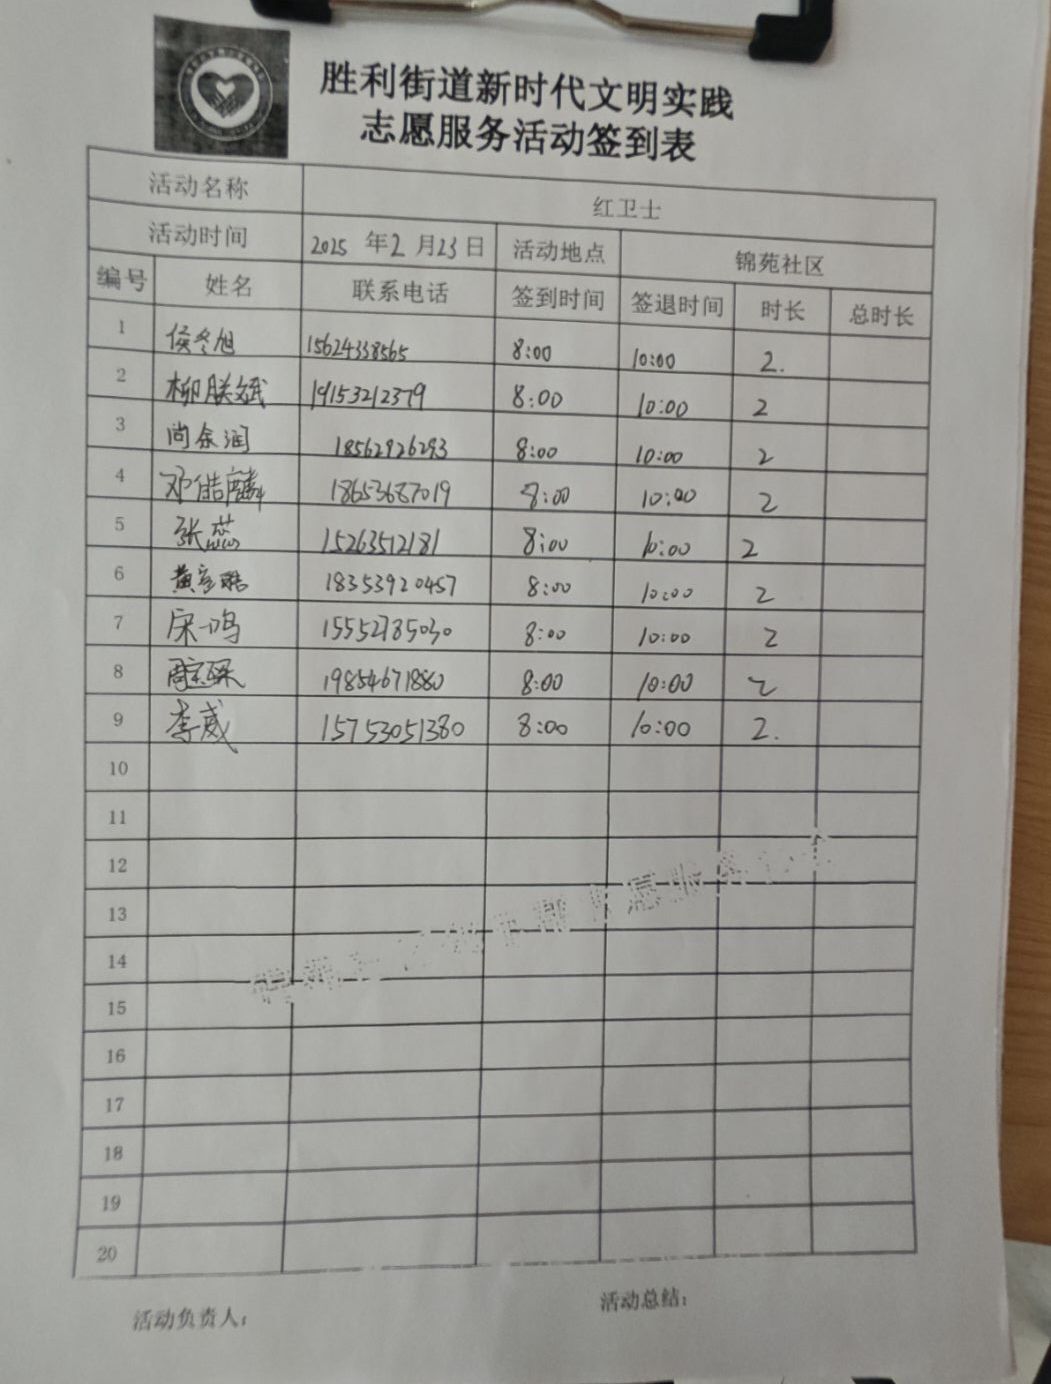 胜利街道新时代文明实践
志愿服务活动签到表
活动名称 红卫士
活动时间 2025 年 2 月 23 日 活动地点 锦苑社区
编号 姓名 联系电话 签到时间 签退时间 时长 总时长
1 侯冬旭 15624338565 8:00 10:00 2.
2 柳朕斌 19153212379 8:00 10:00 2
3 尚余润 18562926293 8:00 10:00 2
4 邓皓麟 18653687019 8:00 10:00 2
5 张蕊 15263512181 8:00 10:00 2
6 黄 18353920457 8:00 10:00 2
7 宋一鸣 15552785030 8:00 10:00 2
8 周 19854671880 8:00 10:00 2
9 李威 15753051380 8:00 10:00 2.
10
11
12
13
14
15
16
17
18
19
20
活动负责人： 活动总结：